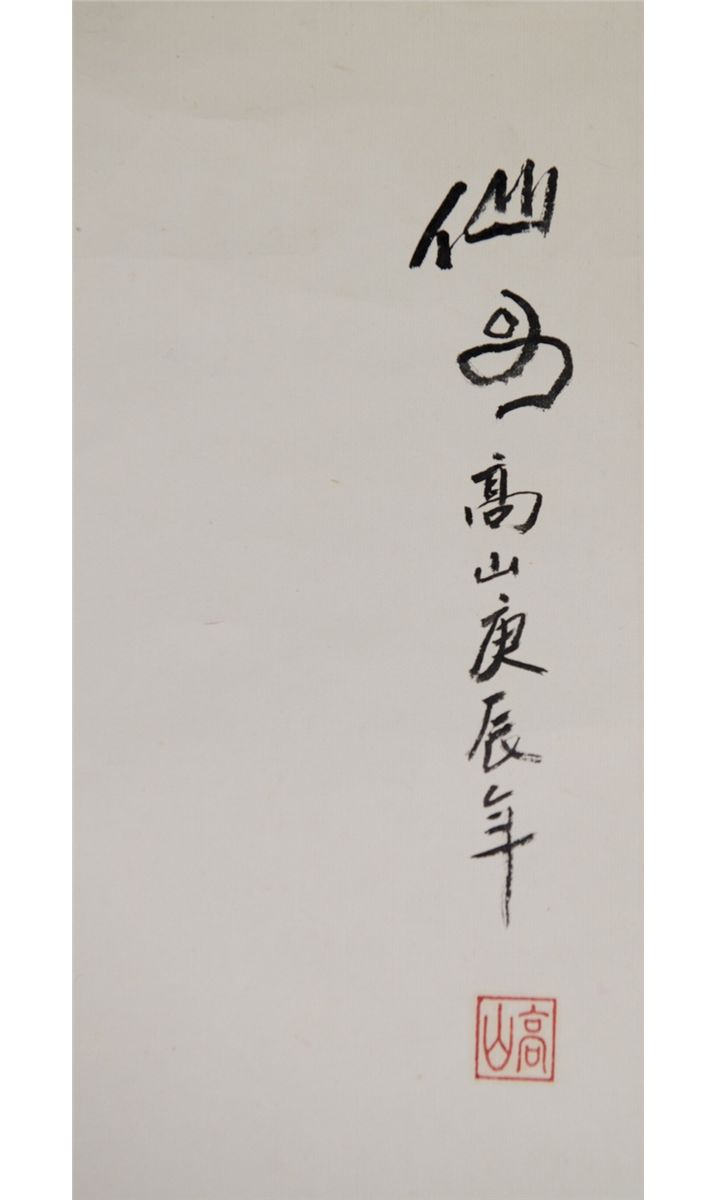 仙 高山庚辰年
高山